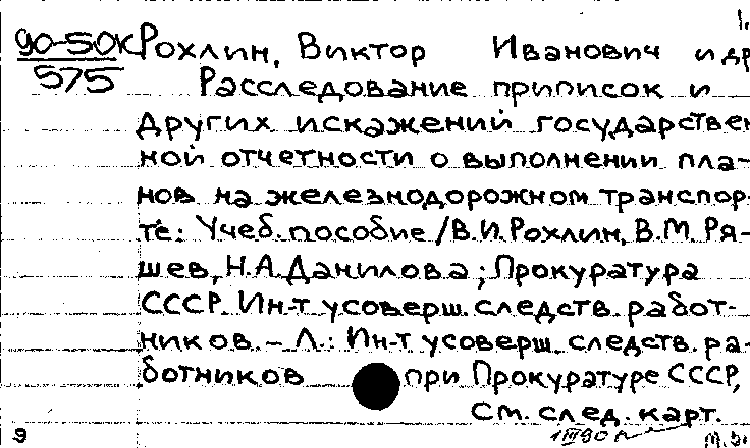 90-5ОК Рохлин, Виктор Иванович и др
575 Расследование приписок и
других искажений государствен
ной отчетности о выполнении пла-
нов на железнодорожном транспор-
те: Учеб. пособие / В.И. Рохлин, В.М. Ря-
шев, Н.А. Данилова; Прокуратура
СССР. Ин-т усоверш. следств. работ-
ников. – Л.: Ин-т усоверш. следств. ра-
ботников при Прокуратуре СССР,
См. след. карт.
9